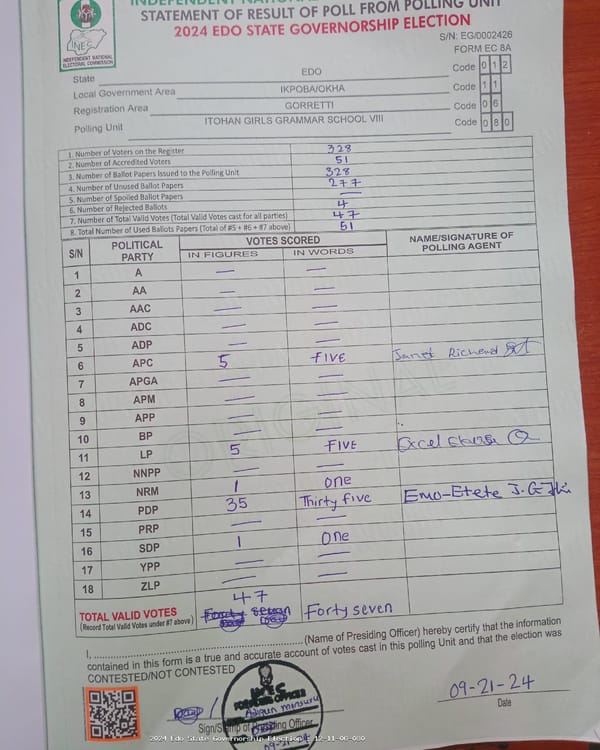 INDEPENDENT NATIONAL
STATEMENT OF RESULT OF POLL FROM POLLING UNIT
2024 EDO STATE GOVERNORSHIP ELECTION
INEC
INDEPENDENT NATIONAL
ELECTORAL COMMISSION
S/N: EG/0002426
FORM EC 8A
State EDO Code 0 1 2
Local Government Area IKPOBA/OKHA Code 1 1
Registration Area GORRETTI Code 0 6
Polling Unit ITOHAN GIRLS GRAMMAR SCHOOL VIII Code 0 8 0
1. Number of Voters on the Register 328
2. Number of Accredited Voters 51
3. Number of Ballot Papers Issued to the Polling Unit 328
4. Number of Unused Ballot Papers 277
5. Number of Spoiled Ballot Papers —
6. Number of Rejected Ballots 4
7. Number of Total Valid Votes (Total Valid Votes cast for all parties) 47
8. Total Number of Used Ballots Papers (Total of #5 + #6 + #7 above) 51
S/N POLITICAL PARTY VOTES SCORED NAME/SIGNATURE OF POLLING AGENT
IN FIGURES IN WORDS
1 A — —
2 AA — —
3 AAC — —
4 ADC — —
5 ADP — —
6 APC 5 FIVE Janet Richend
7 APGA — —
8 APM — —
9 APP — —
10 BP — —
11 LP 5 FIVE Excel
12 NNPP — —
13 NRM 1 One
14 PDP 35 Thirty five Emo-Etete J.G
15 PRP — —
16 SDP 1 One
17 YPP — —
18 ZLP — —
47
TOTAL VALID VOTES Forty seven
(Record Total Valid Votes under #7 above)
I, (Name of Presiding Officer) hereby certify that the information
contained in this form is a true and accurate account of votes cast in this polling Unit and that the election was
CONTESTED/NOT CONTESTED
INEC
09-21-24
Sign/Stamp of Presiding Officer
Date
09-21-24
2024 Edo State Governorship Election : 12-11-06-080